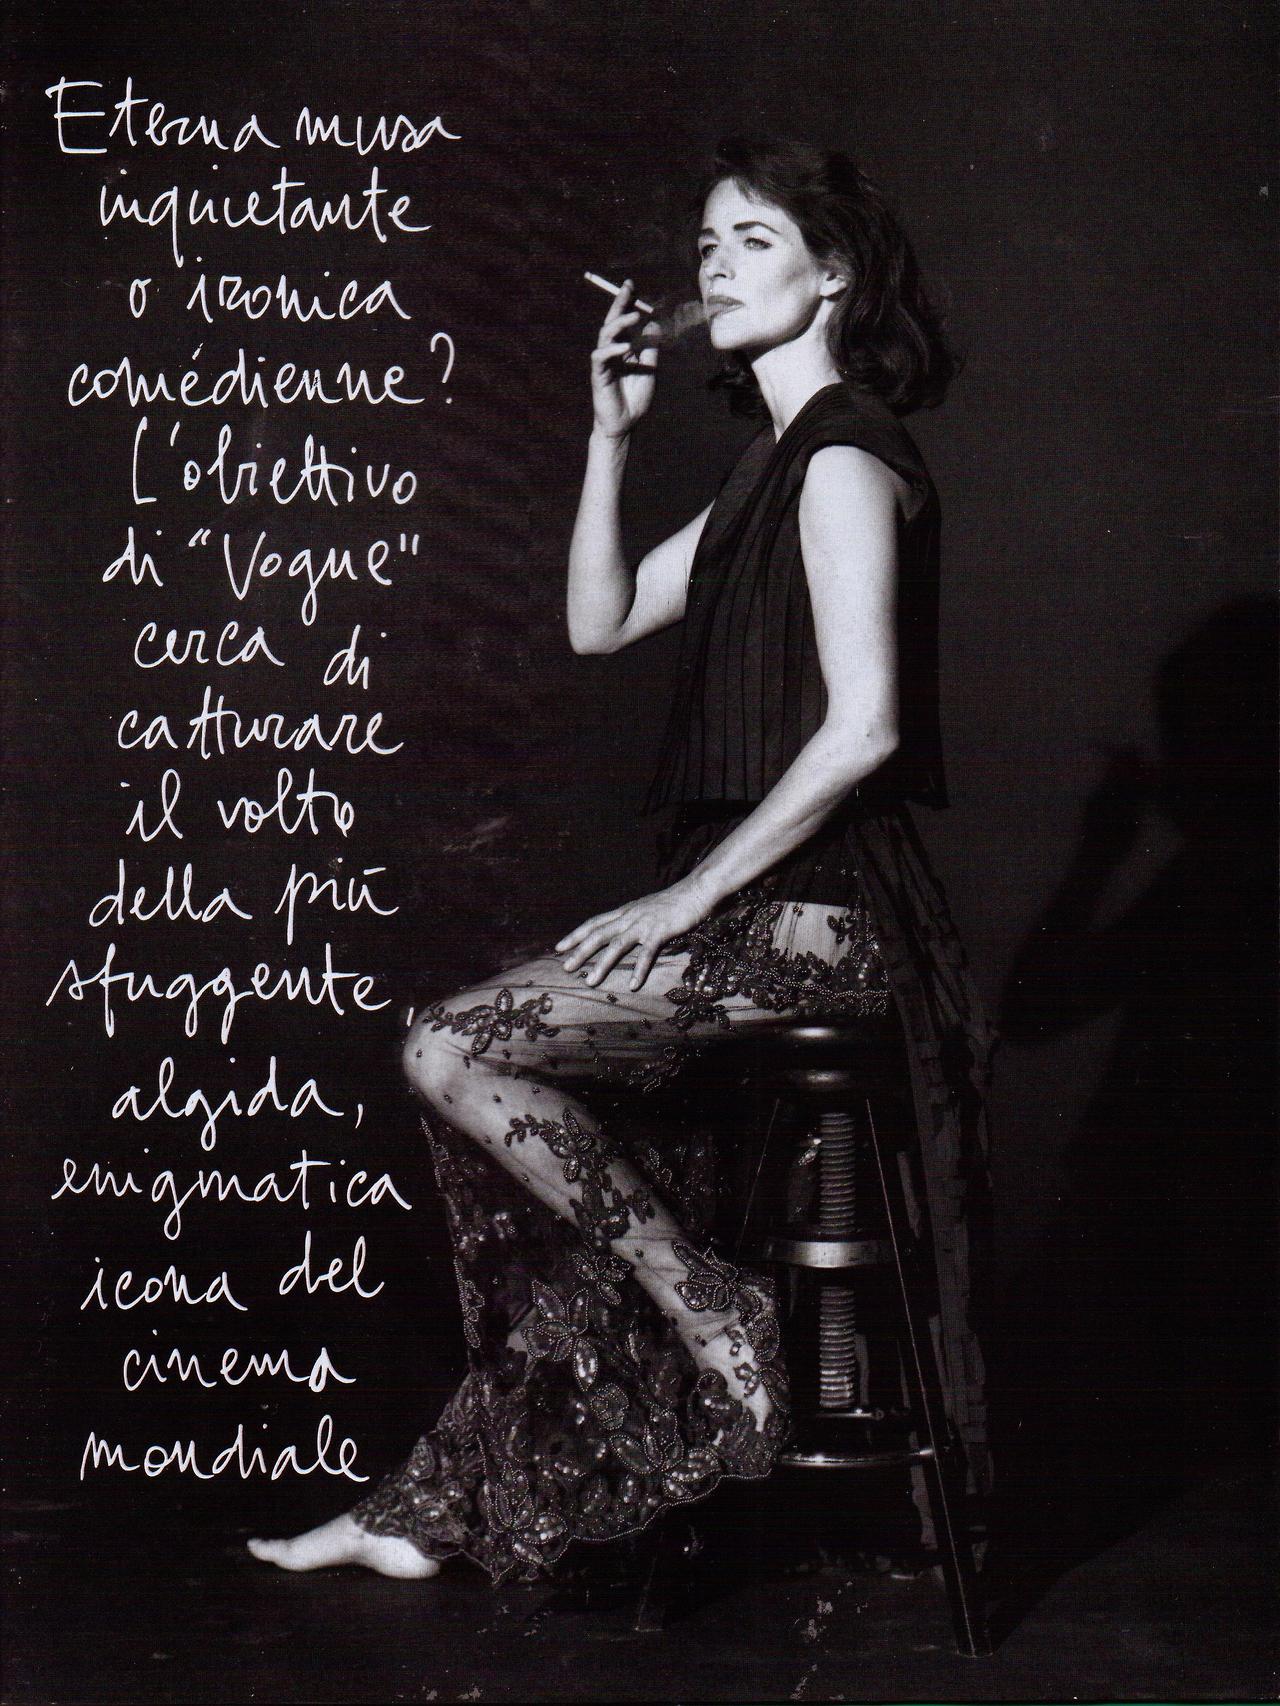 Eterna musa
inquietante
o ironica
comédienne?
L'obiettivo
di "Vogue"
cerca di
catturare
il volto
della più
sfuggente,
algida,
enigmatica
icona del
cinema
mondiale